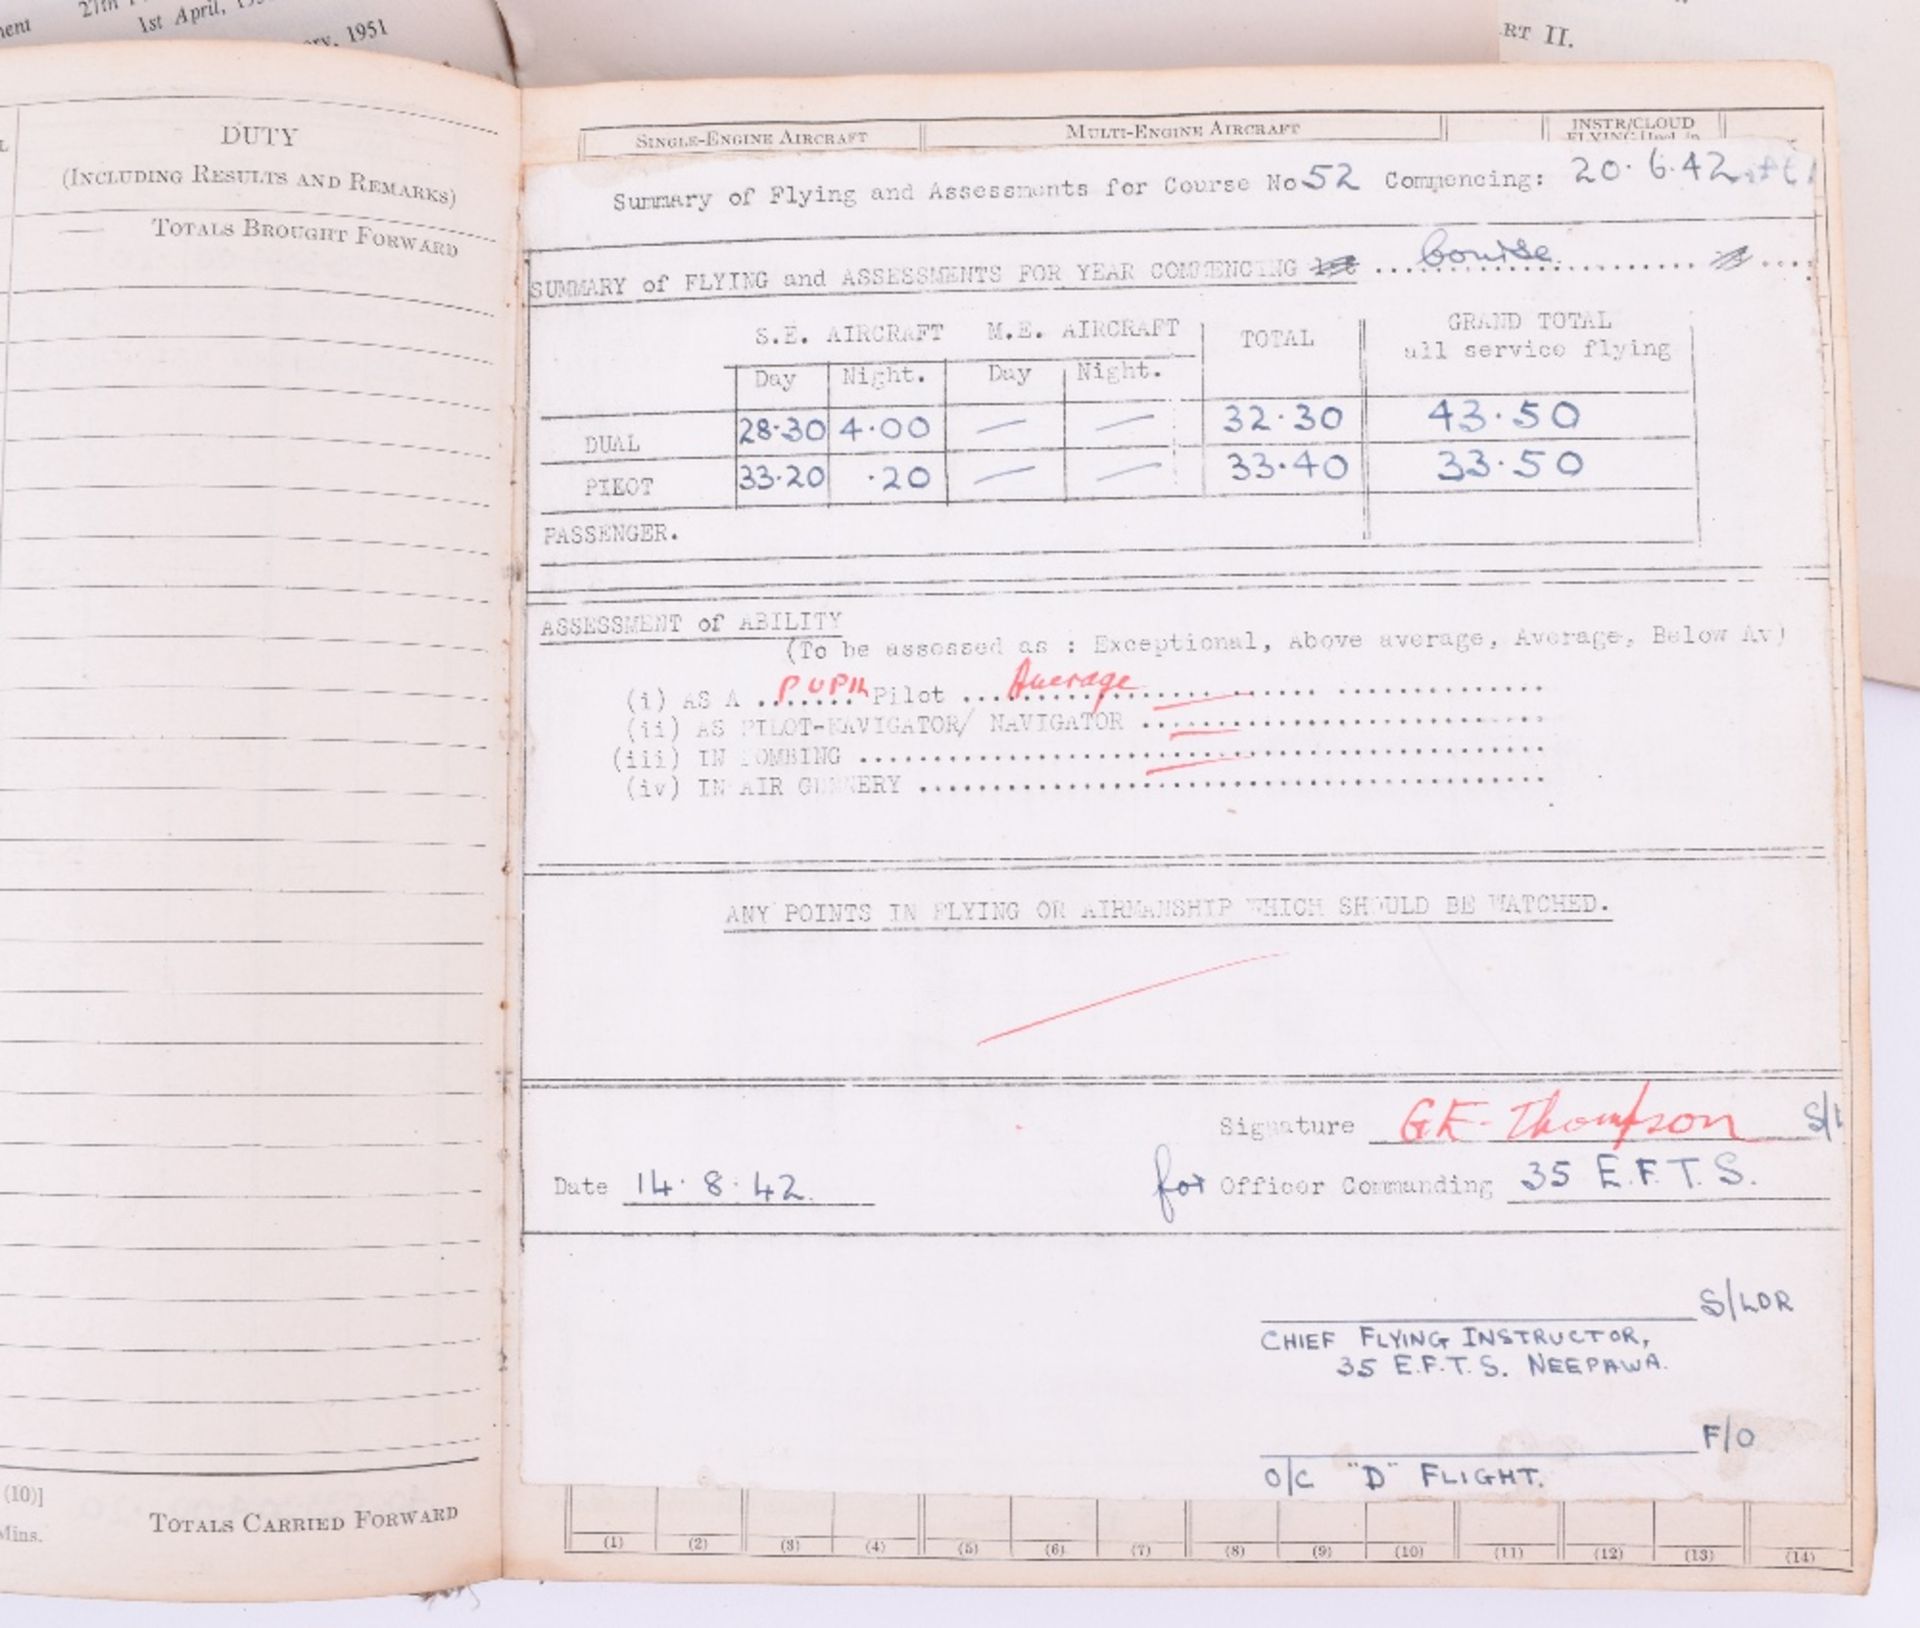 1st April,
1951
RT II.
DUTY
(INCLUDING RESULTS AND REMARKS)
TOTALS BROUGHT FORWARD
(10)]
Mins.
TOTALS CARRIED FORWARD
SINGLE-ENGINE AIRCRAFT MULTI-ENGINE AIRCRAFT INSTR/CLOUD
Summary of Flying and Assessments for Course No 52 Commencing: 20.6.42
SUMMARY of FLYING and ASSESSMENTS FOR YEAR COMMENCING Course
S.E. AIRCRAFT M.E. AIRCRAFT TOTAL GRAND TOTAL
all service flying
Day Night. Day Night.
DUAL 28.30 4.00 — — 32.30 43.50
PILOT 33.20 .20 — — 33.40 33.50
PASSENGER.
ASSESSMENT of ABILITY
(To be assessed as : Exceptional, Above average, Average, Below Av)
(i) AS A PUPIL Pilot Average
(ii) AS PILOT-NAVIGATOR/ NAVIGATOR
(iii) IN BOMBING
(iv) IN AIR GUNNERY
ANY POINTS IN FLYING OR AIRMANSHIP WHICH SHOULD BE WATCHED.
Signature GE. Thompson S/L
Date 14.8.42. for Officer Commanding 35 E.F.T.S.
S/LDR
CHIEF FLYING INSTRUCTOR,
35 E.F.T.S. NEEPAWA.
F/O
O/C "D" FLIGHT.
(1) (2) (3) (4) (5) (6) (7) (8) (9) (10) (11) (12) (13) (14)